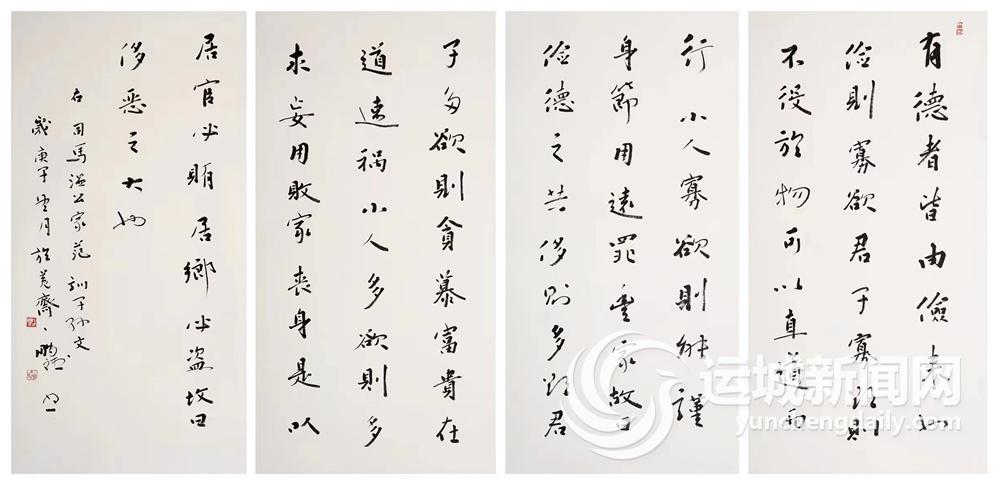 有德者皆由儉来也
俭則寡欲君子寡欲則
不役於物可以直道而
行小人寡欲則能謹
身節用遠罪豐家故曰
俭德之共侈则多欲君
子多欲則貪慕富貴枉
道速禍小人多欲則多
求妄用敗家喪身是以
居官必賄居鄉必盗故曰
侈惡之大也
右司馬温公家范训子孙文
歲庚子月於齋
运城新闻网
yunchengdaily.com